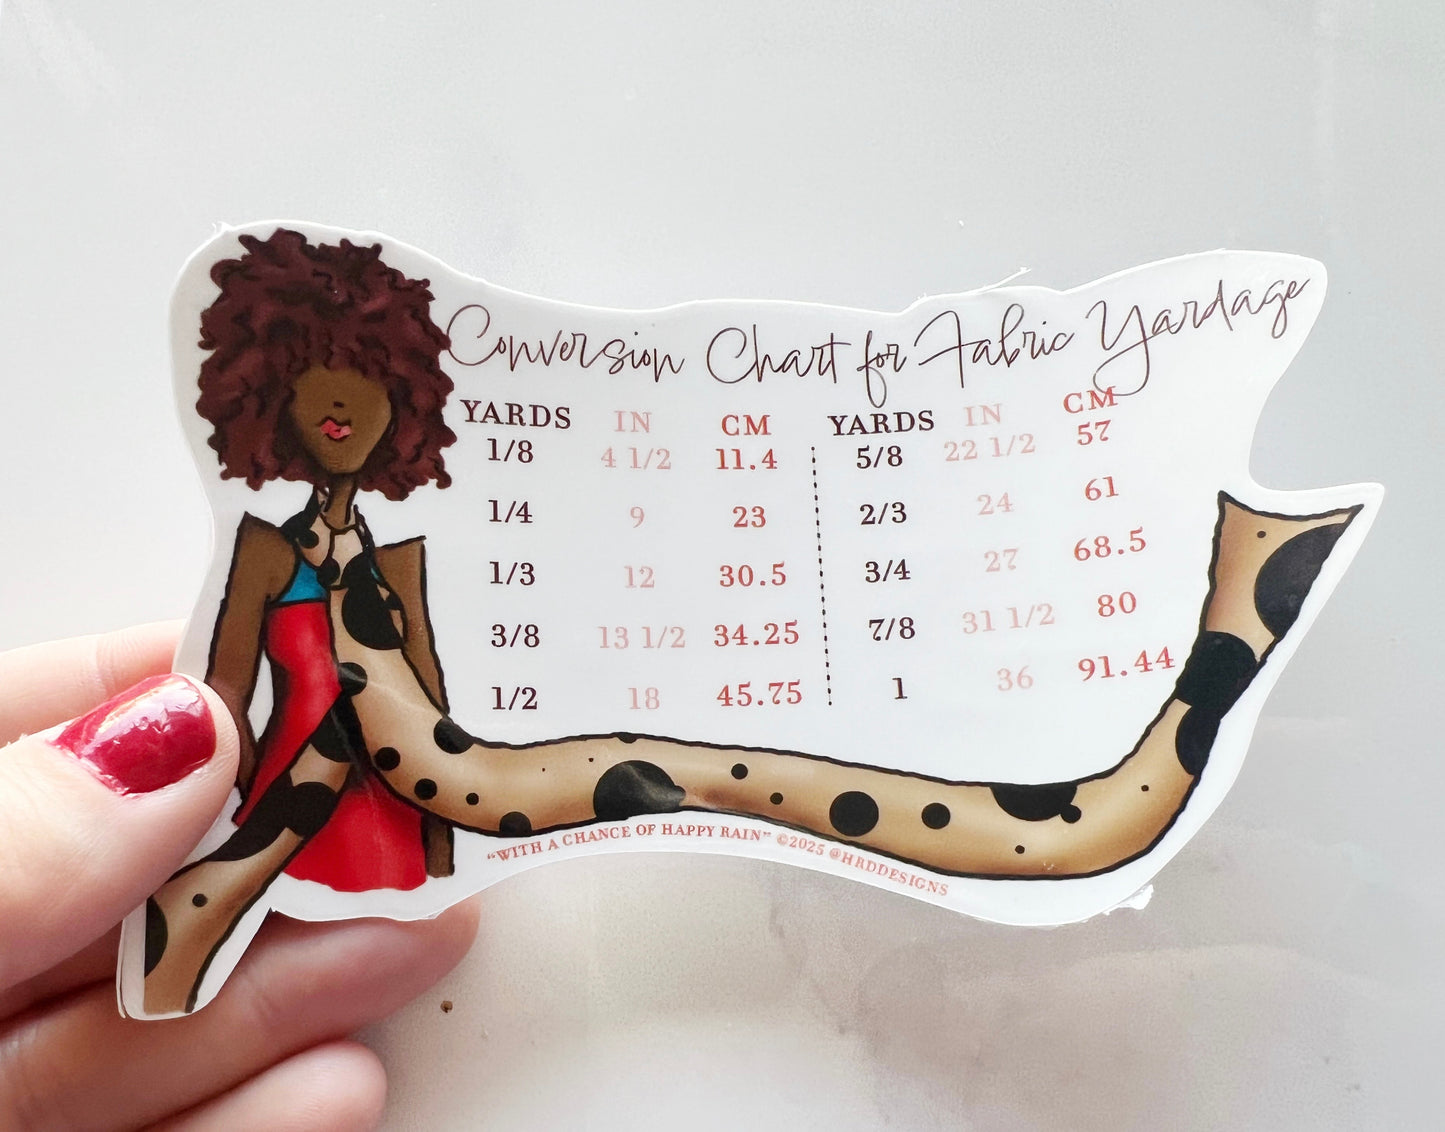 Conversion Chart for Fabric Yardage
YARDS IN CM
1/8 4 1/2 11.4
1/4 9 23
1/3 12 30.5
3/8 13 1/2 34.25
1/2 18 45.75
YARDS IN CM
5/8 22 1/2 57
2/3 24 61
3/4 27 68.5
7/8 31 1/2 80
1 36 91.44
"WITH A CHANCE OF HAPPY RAIN" ©2025 @HRDDESIGNS